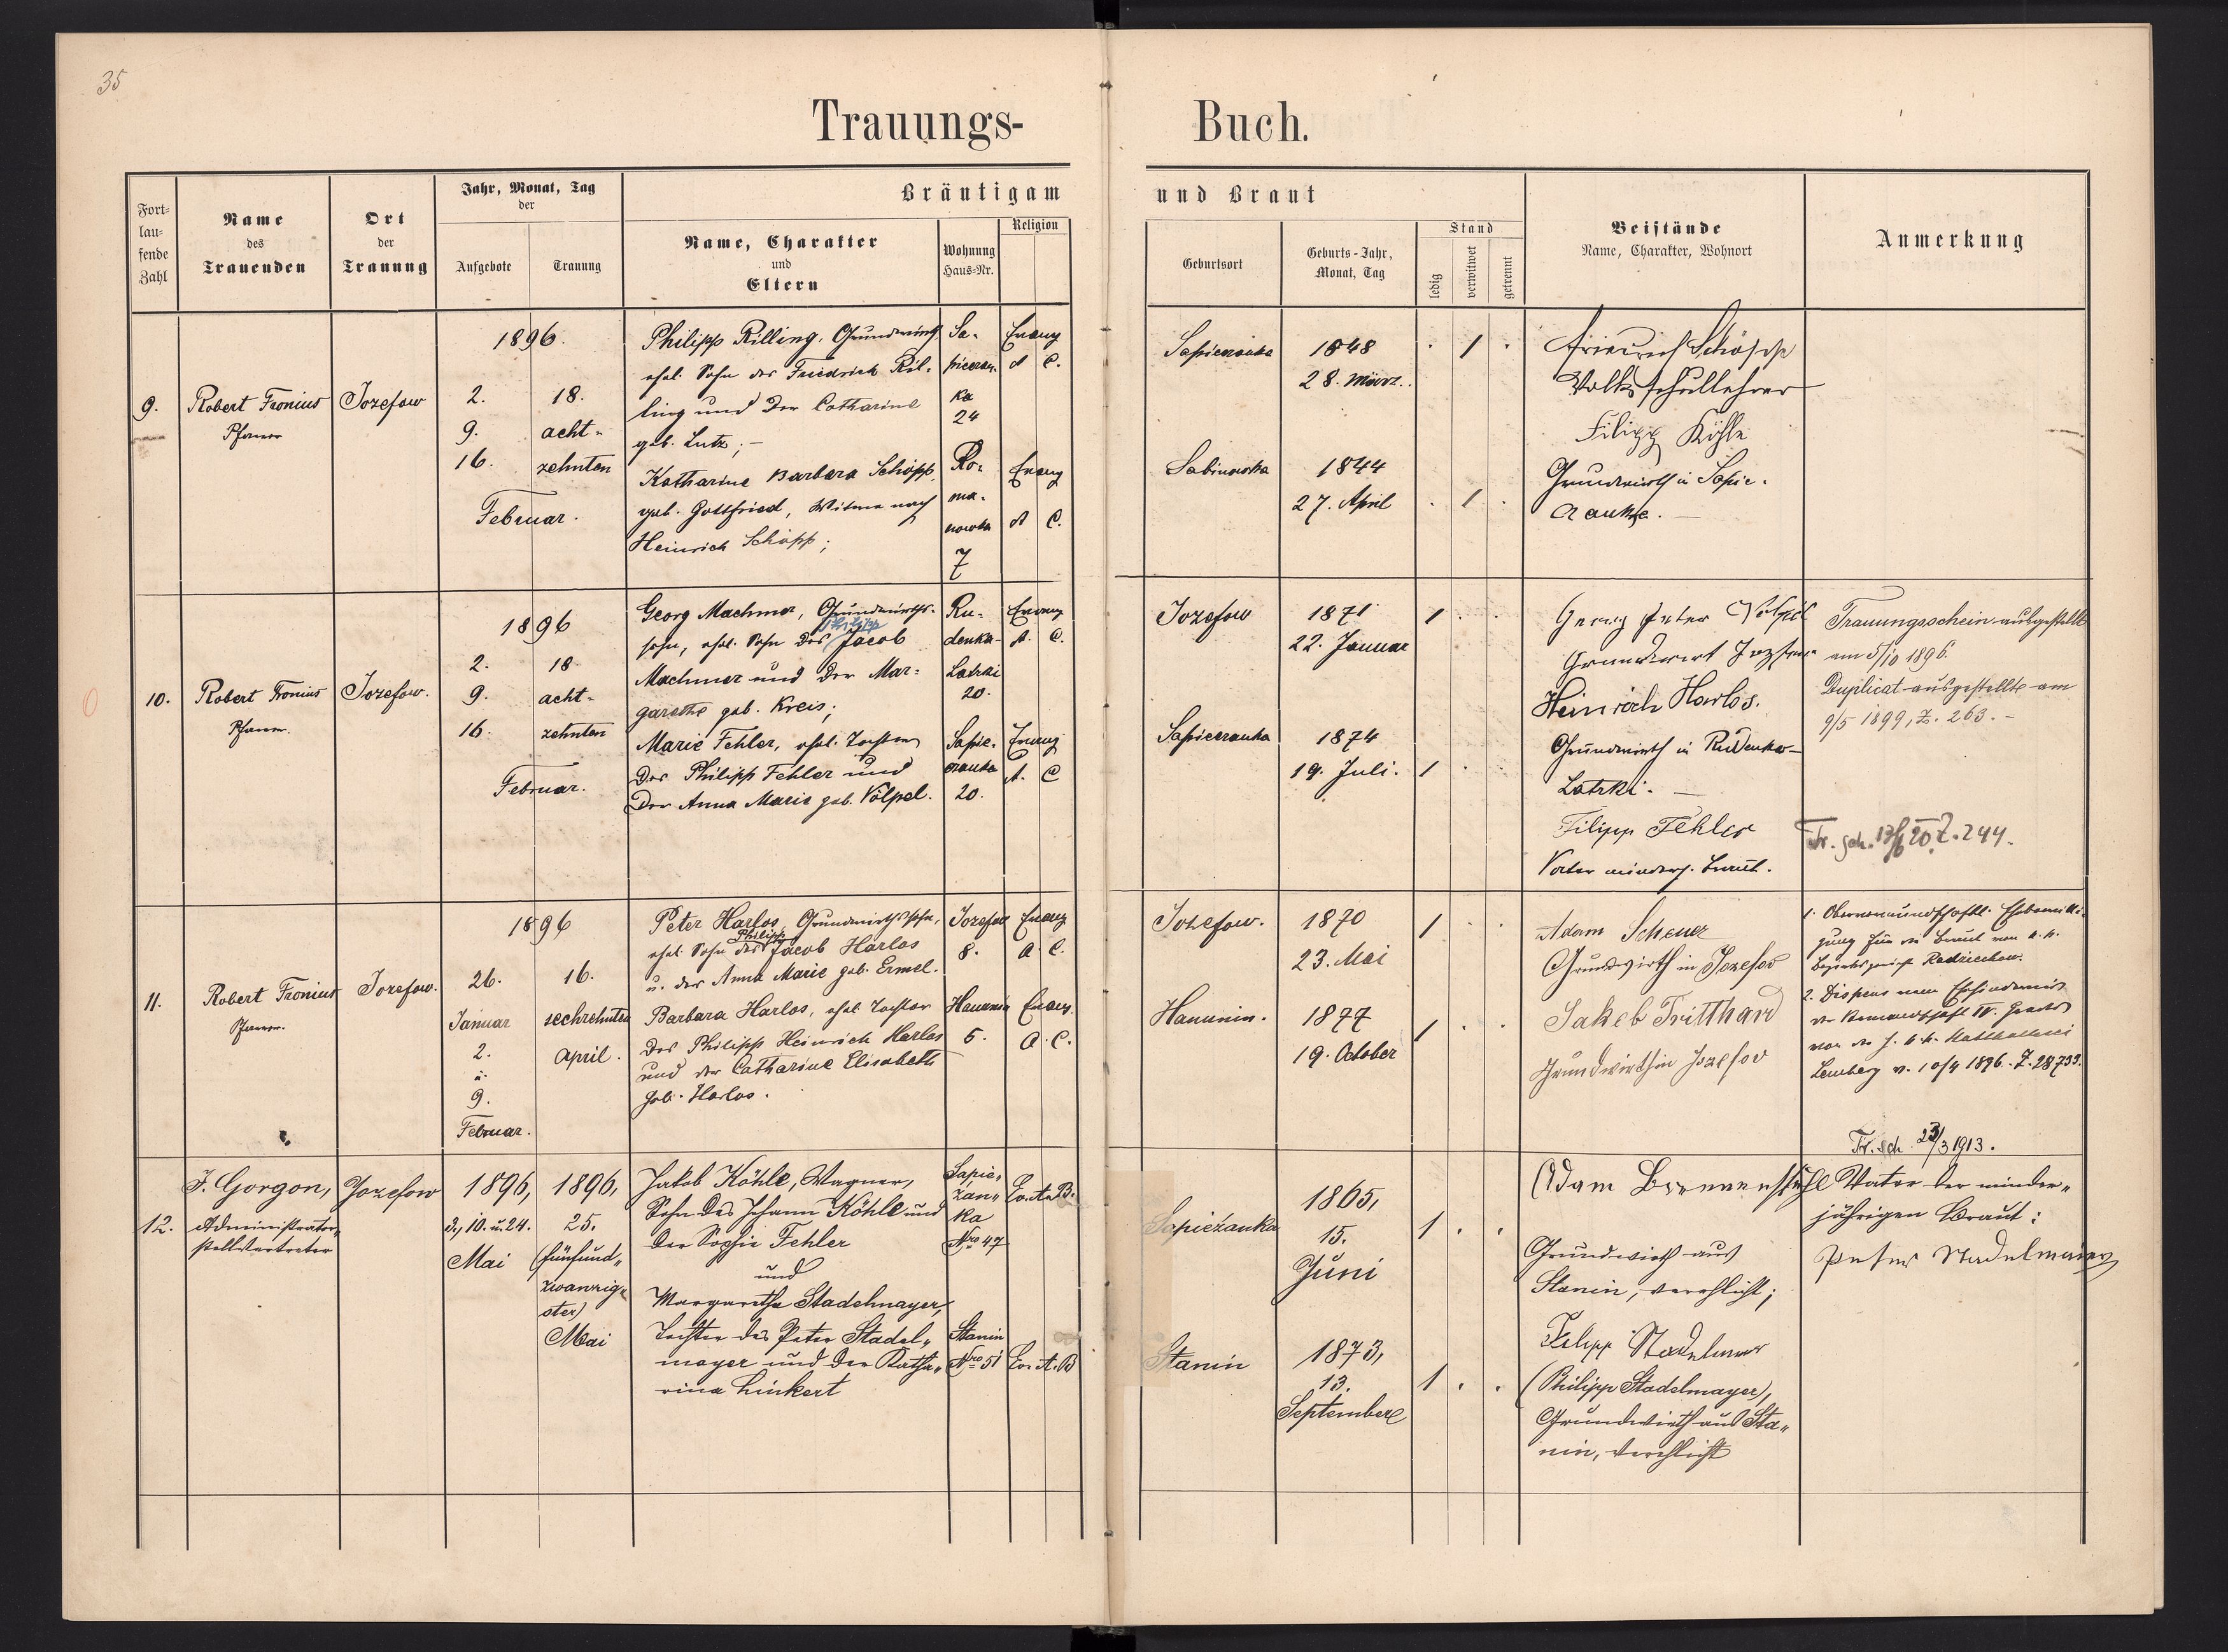 35
Trauungs-
Buch.
Fort-
lau-
fende
Zahl
Name
des
Trauenden
Ort
der
Trauung
Jahr, Monat, Tag
der
Aufgebote
Trauung
Bräutigam
Name, Charakter
und
Eltern
Wohnung
Haus-Nr.
Religion
und Braut
Geburtsort
Geburts-Jahr,
Monat, Tag
Stand
ledig
verwitwet
getrennt
Beistände
Name, Charakter, Wohnort
Anmerkung
9.
Robert Fronius
Pfarrer
Jozefow
1896.
2.
9.
16.
18.
acht-
zehnten
Februar.
Philipp Rilling, Grundwirth
ehel. Sohn des Friedrich Ril-
ling und der Catharine
geb. Lutz; -
Sa-
piezan-
ka
24
Evang
A C.
Katharine Barbara Schöpp,
geb. Gottfried, Witwe nach
Heinrich Schöpp;
Ro-
ma-
nowka
7
Evang
A C.
Sapiezanka
1848
28. März.
. 1 .
Sabinowka
1844
27. April
. 1 .
Friedrich Schöpp
Volksschullehrer
Filipp Köhle
Grundwirth in Sapie-
zanka. -
10.
Robert Fronius
Pfarrer.
Jozefow.
1896
2.
9.
16.
18.
acht-
zehnten
Februar.
Georg Machmer, Grundwirths-
Philipp
sohn, ehel. Sohn des Jacob
Machmer und der Mar-
garethe geb. Kreis;
Ru-
denka-
Latzki
20.
Evang
A. C.
Marie Fehler, ehel. Tochter
des Philipp Fehler und
der Anna Marie geb. Völpel.
Sapie-
zanka
20.
Evang
A. C
Jozefow
1871
22. Januar
1 . .
Sapiezanka
1874
19. Juli.
1 .
Georg Peter Völpel
Grundwirt Jozefow
Heinrich Harlos.
Grundwirth in Rudenko-
Latzki. -
Filipp Fehler
Vater minderj. Braut.
Trauungsschein ausgestellt
am 5/10 1896.
Duplicat ausgestellt am
9/5 1899, Z. 263. -
Tr. sch. 17/6 20 Z. 244.
11.
Robert Fronius
Pfarrer.
Jozefow.
1896
26.
Januar
2.
u.
9.
Februar.
16.
sechzehnten
April.
Peter Harlos, Grundwirthssohn,
Philipp
ehel. Sohn des Jacob Harlos
u. der Anna Marie geb. Ermel.
Jozefow
8.
Evang
A. C.
Barbara Harlos, ehel. Tochter
des Philipp Heinrich Harlos
und der Catharine Elisabeth
geb. Harlos.
Hanunin
5.
Evang.
A. C.
Jozefow.
1870
23. Mai
1 . .
Hanunin.
1877
19. October
1 . .
Adam Scheuer
Grundwirth in Jozefow
Jakob Tritthard
Grundwirth in Jozefow
1. Obervormundschaftl. Ehebewilli-
gung für die Braut vom k. k.
Bezirksgericht Radziechow.
2. Dispens vom Ehehindernis
der Verwandtschaft IV. Grades
von der h. k. k. Statthalterei
Lemberg v. 10/4 1896. Z. 28733.
Tr. sch. 23/3 1913.
12.
J. Gorgon,
Administrators-
stellvertreter
Jozefow
1896,
3., 10. u. 24.
Mai
1896,
25.
(fünfund-
zwanzig-
ster)
Mai
Jakob Köhle, Wagner,
Sohn des Johann Köhle und
der Sophie Fehler
und
Margaretha Stadelmayer,
Tochter des Peter Stadel-
mayer und der Katha-
rina Linkert
Sapie-
żan-
ka
Nro 47
Ev. A. B.
Stanin
Nro 51
Ev. A. B
Sapieżanka
1865,
15.
Juni
1 . .
Stanin
1873,
13.
September
1 . .
Adam Brennenstuhl
Grundwirth aus
Stanin, verehlicht;
Filipp Stadelmeier
(Philipp Stadelmayer),
Grundwirth aus Sta-
nin, verehlicht
Vater der minder-
jährigen Braut:
Peter Stadelmaier